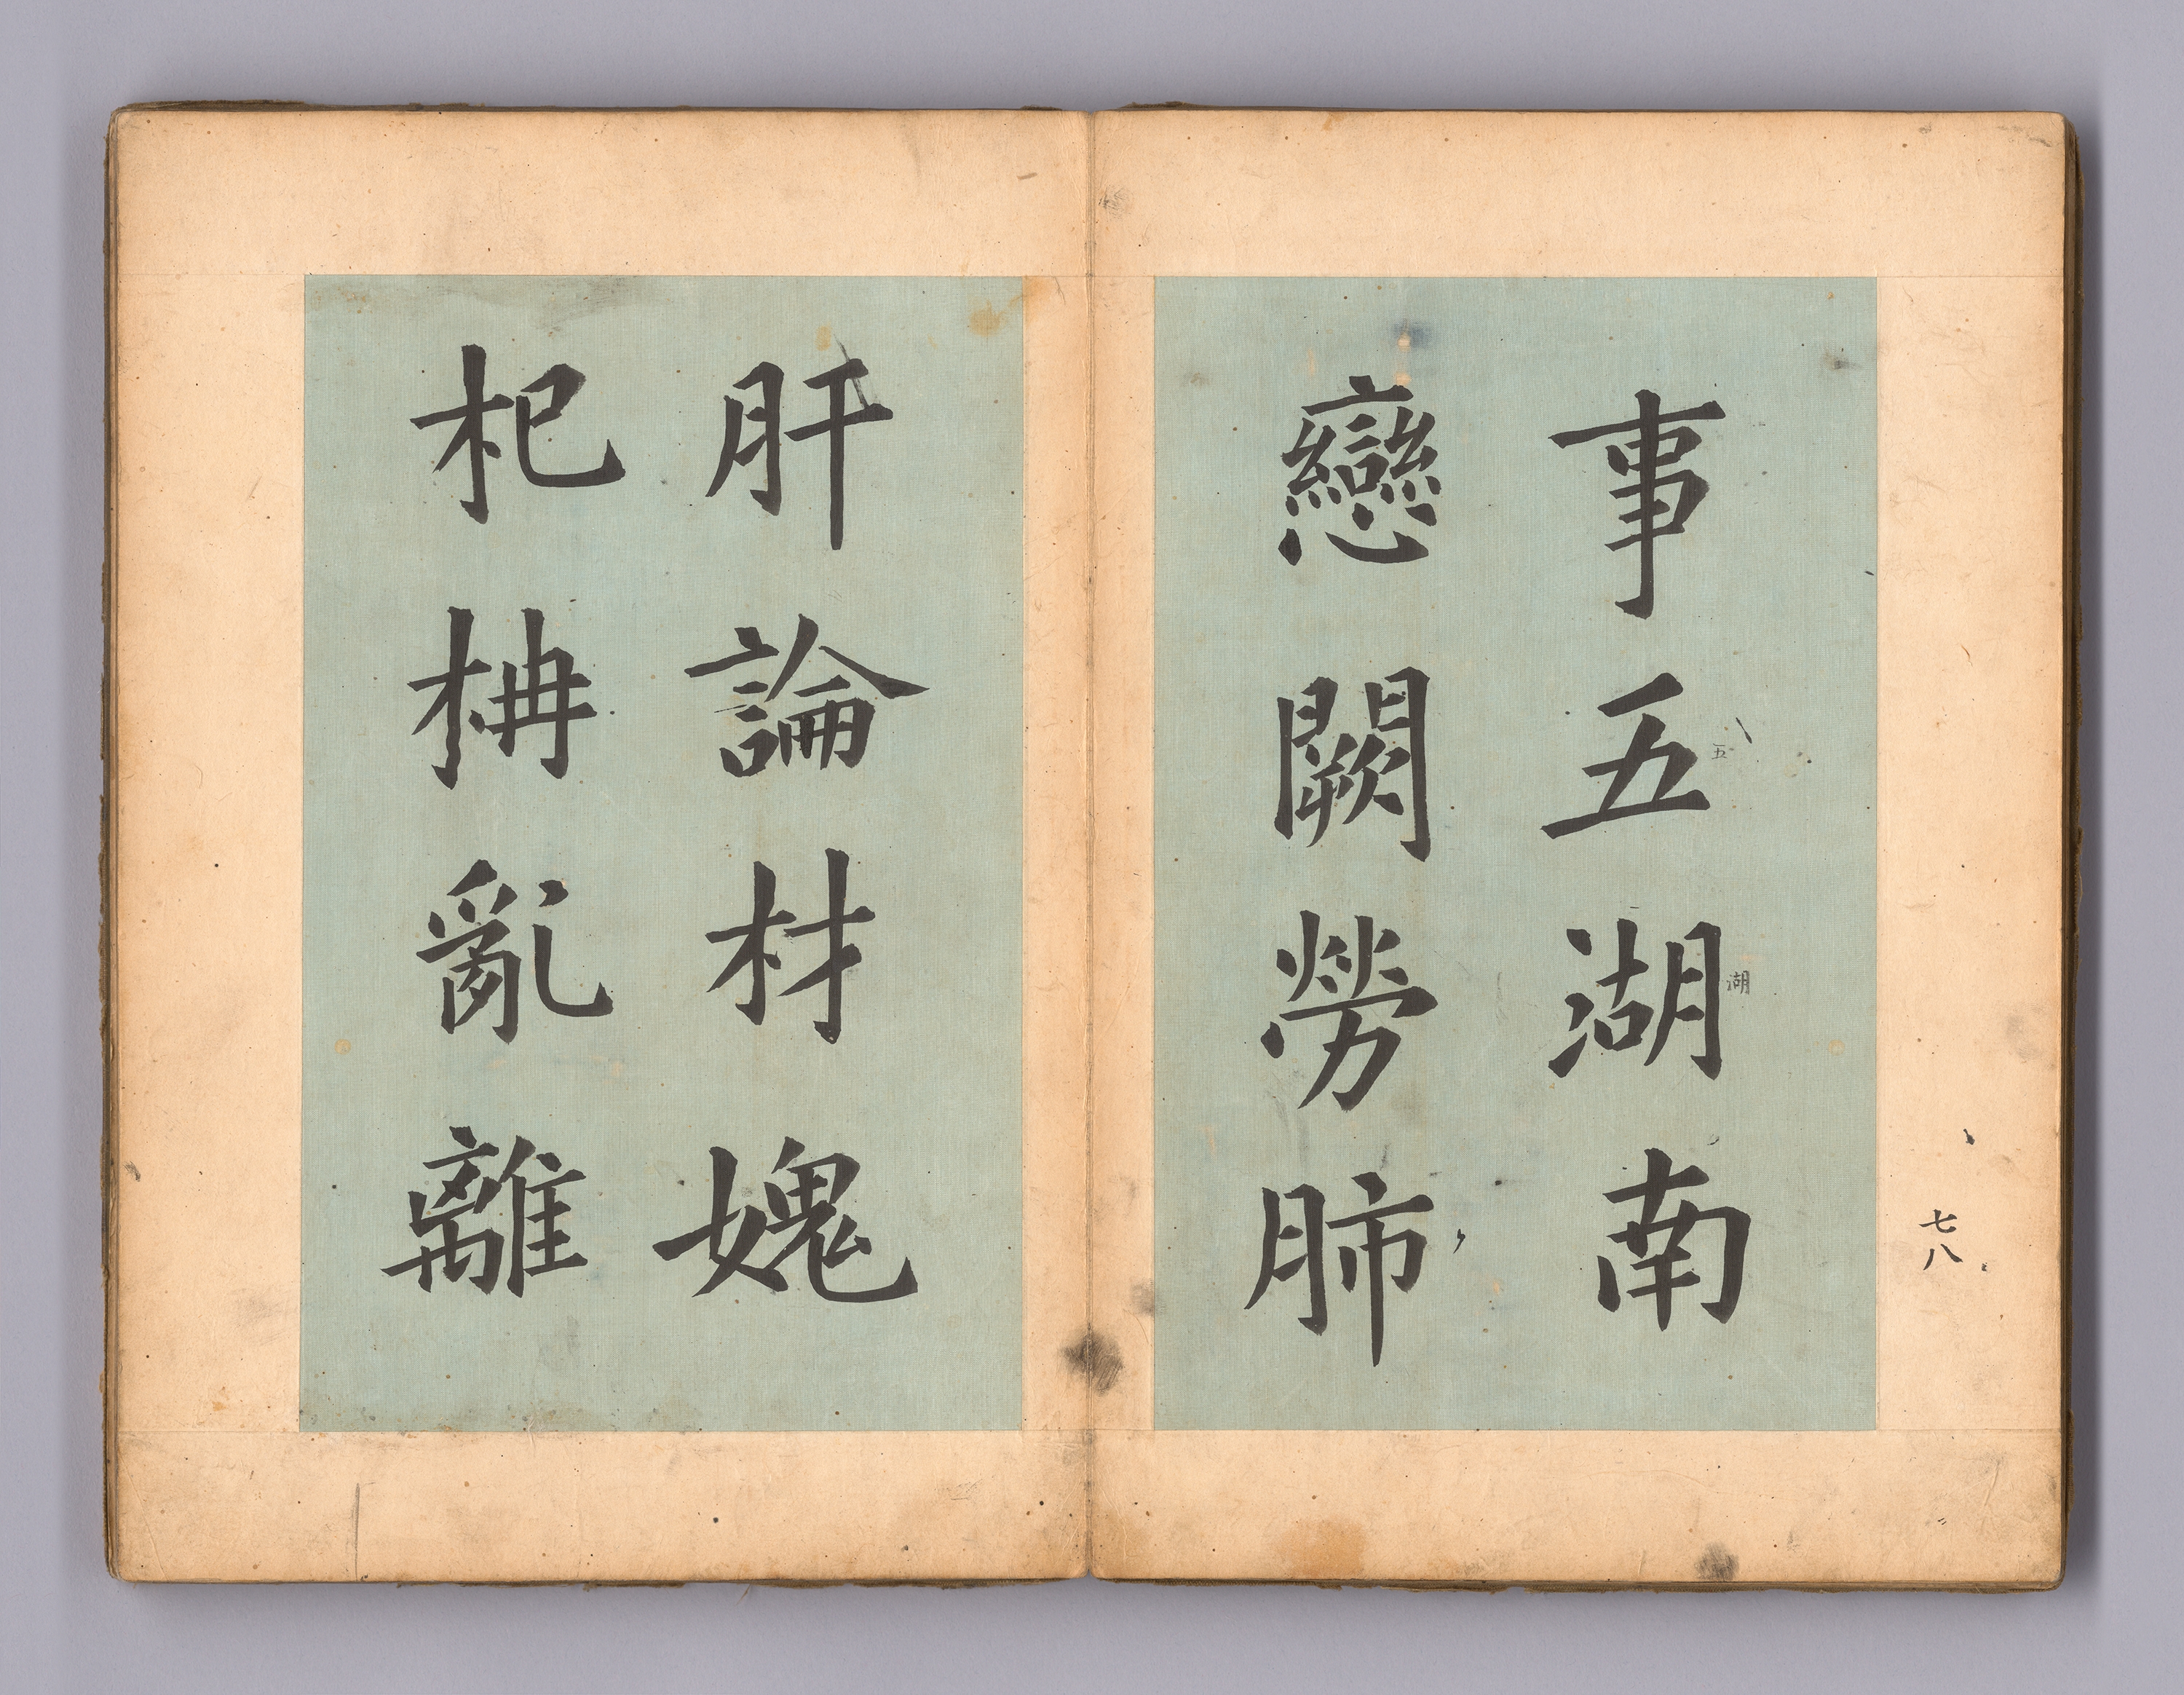 七八
事五湖南
五
湖
戀闕勞肺
肝論材媿
杞枏亂離